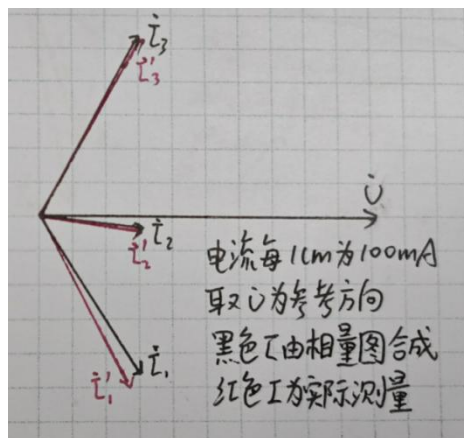 i̇₃
i̇'₃
U̇
i̇₂
i̇'₂
电流每1cm为100mA
取U̇为参考方向
i̇₁
黑色I由相量图合成
i̇'₁
红色I为实际测量